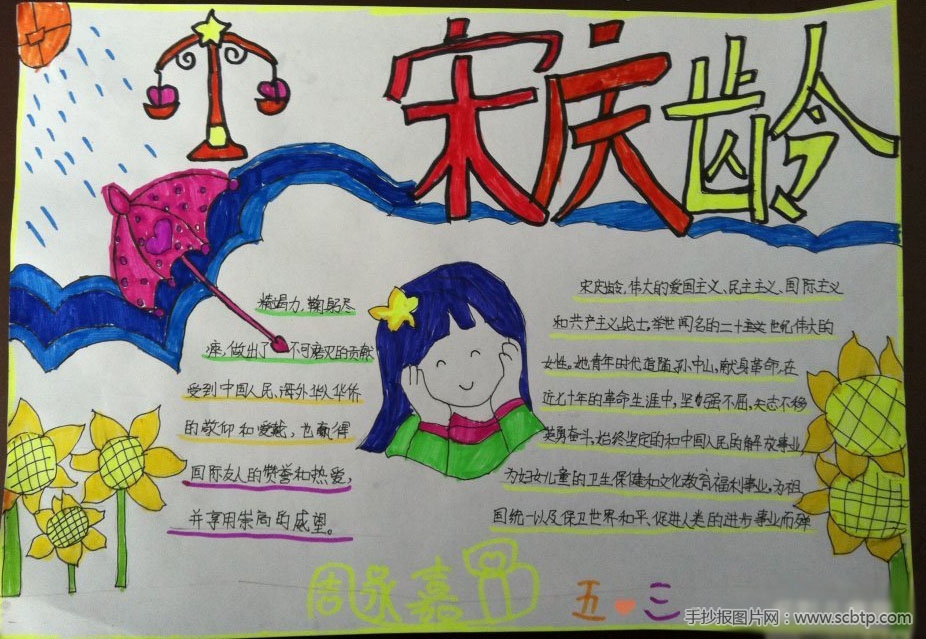 宋庆龄
宋庆龄,伟大的爱国主义、民主主义、国际主义
和共产主义战士,举世闻名的二十世纪伟大的
女性。她青年时代追随孙中山,献身革命,在
近七十年的革命生涯中,坚强不屈,矢志不移
英勇奋斗,始终坚定的和中国人民的解放事业
为妇女儿童的卫生保健和文化教育福利事业,为祖
国统一以及保卫世界和平、促进人类的进步事业而殚
精竭力,鞠躬尽
瘁,做出了不可磨灭的贡献
受到中国人民、海外华人华侨
的敬仰和爱戴,也赢得
国际友人的赞誉和热爱,
并享用崇高的威望。
周永嘉
五 三
手抄报图片网:www.scbtp.com